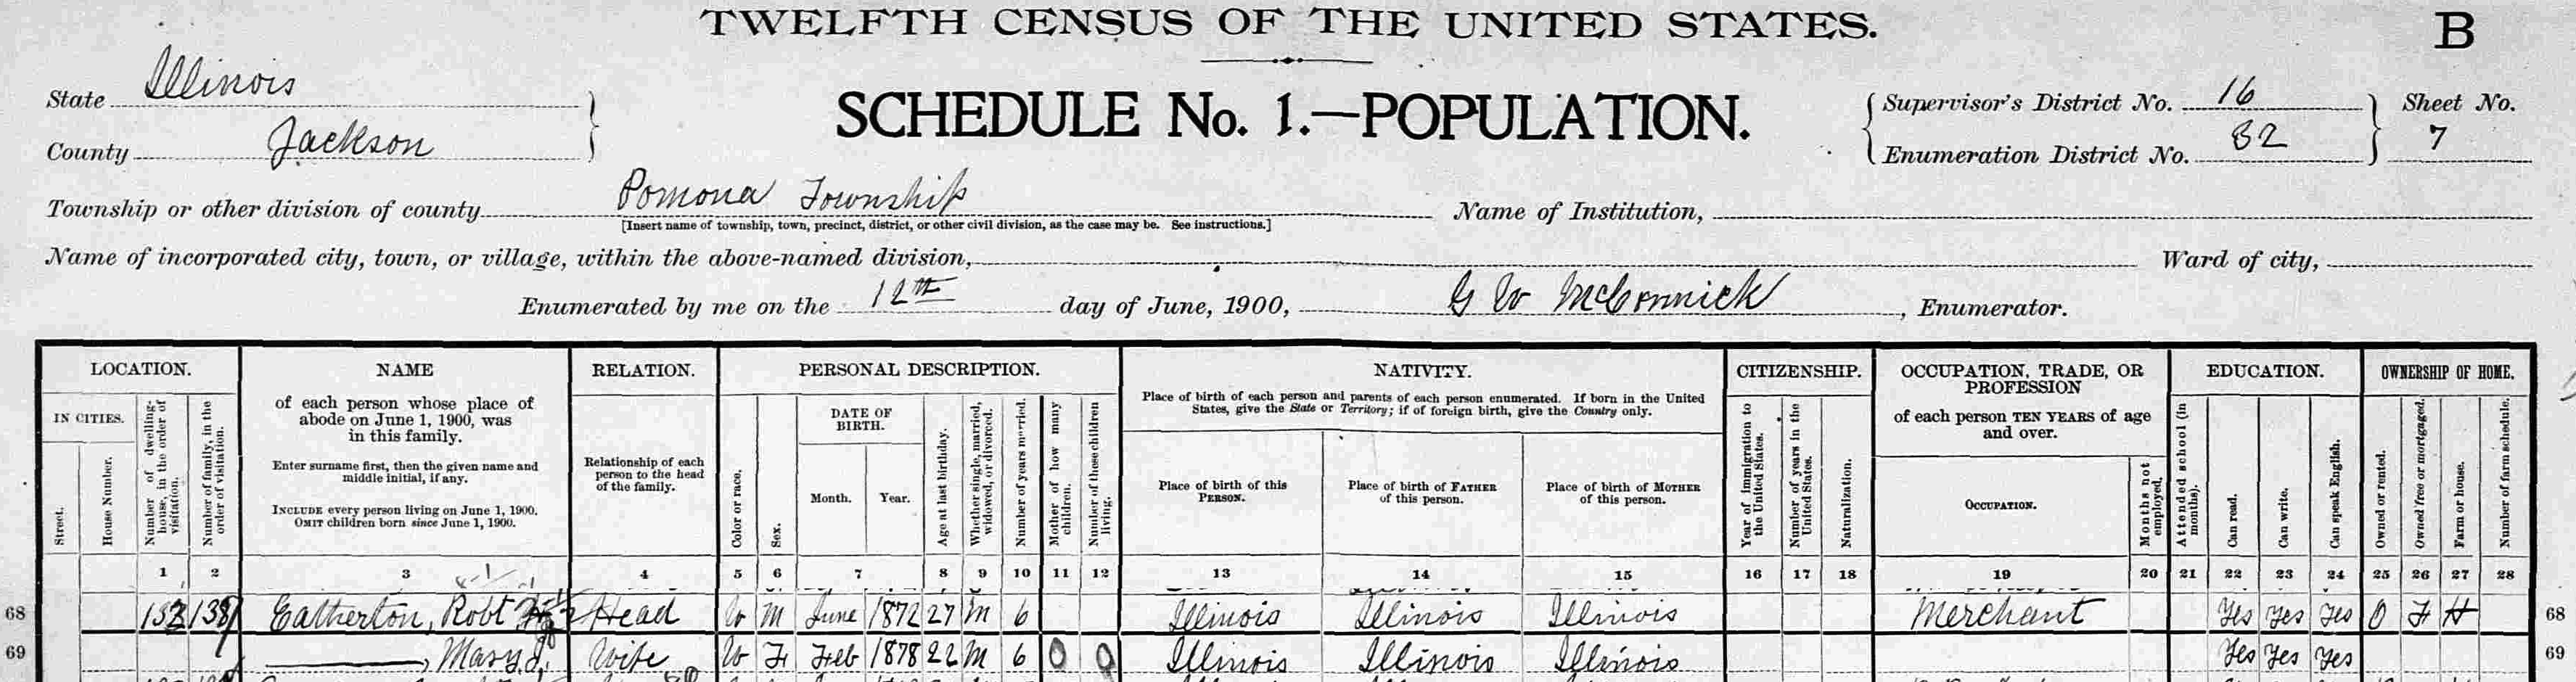 TWELFTH CENSUS OF THE UNITED STATES.
B
State Illinois
County Jackson
SCHEDULE No. 1.—POPULATION.
Supervisor's District No. 16
Enumeration District No. 82
Sheet No.
7
Township or other division of county Pomona Township
[Insert name of township, town, precinct, district, or other civil division, as the case may be. See instructions.]
Name of Institution,
Name of incorporated city, town, or village, within the above-named division,
Ward of city,
Enumerated by me on the 12th day of June, 1900, G W McCormick, Enumerator.
LOCATION.
IN CITIES.
Street.
House Number.
Number of dwelling-house, in the order of visitation.
Number of family, in the order of visitation.
NAME
of each person whose place of
abode on June 1, 1900, was
in this family.
Enter surname first, then the given name and
middle initial, if any.
INCLUDE every person living on June 1, 1900.
OMIT children born since June 1, 1900.
RELATION.
Relationship of each
person to the head
of the family.
PERSONAL DESCRIPTION.
Color or race.
Sex.
DATE OF
BIRTH.
Month.
Year.
Age at last birthday.
Whether single, married, widowed, or divorced.
Number of years married.
Mother of how many children.
Number of these children living.
NATIVITY.
Place of birth of each person and parents of each person enumerated. If born in the United
States, give the State or Territory; if of foreign birth, give the Country only.
Place of birth of this
PERSON.
Place of birth of FATHER
of this person.
Place of birth of MOTHER
of this person.
CITIZENSHIP.
Year of immigration to the United States.
Number of years in the United States.
Naturalization.
OCCUPATION, TRADE, OR
PROFESSION
of each person TEN YEARS of age
and over.
OCCUPATION.
Months not employed.
EDUCATION.
Attended school (in months).
Can read.
Can write.
Can speak English.
OWNERSHIP OF HOME.
Owned or rented.
Owned free or mortgaged.
Farm or house.
Number of farm schedule.
1 2 3 4 5 6 7 8 9 10 11 12 13 14 15 16 17 18 19 20 21 22 23 24 25 26 27 28
68 Eatherton, Robt Head W M June 1872 27 M 6 Illinois Illinois Illinois Merchant Yes Yes Yes O F H 68
69 Mary Wife W F Feb 1878 22 M 6 0 0 Illinois Illinois Illinois Yes Yes Yes 69